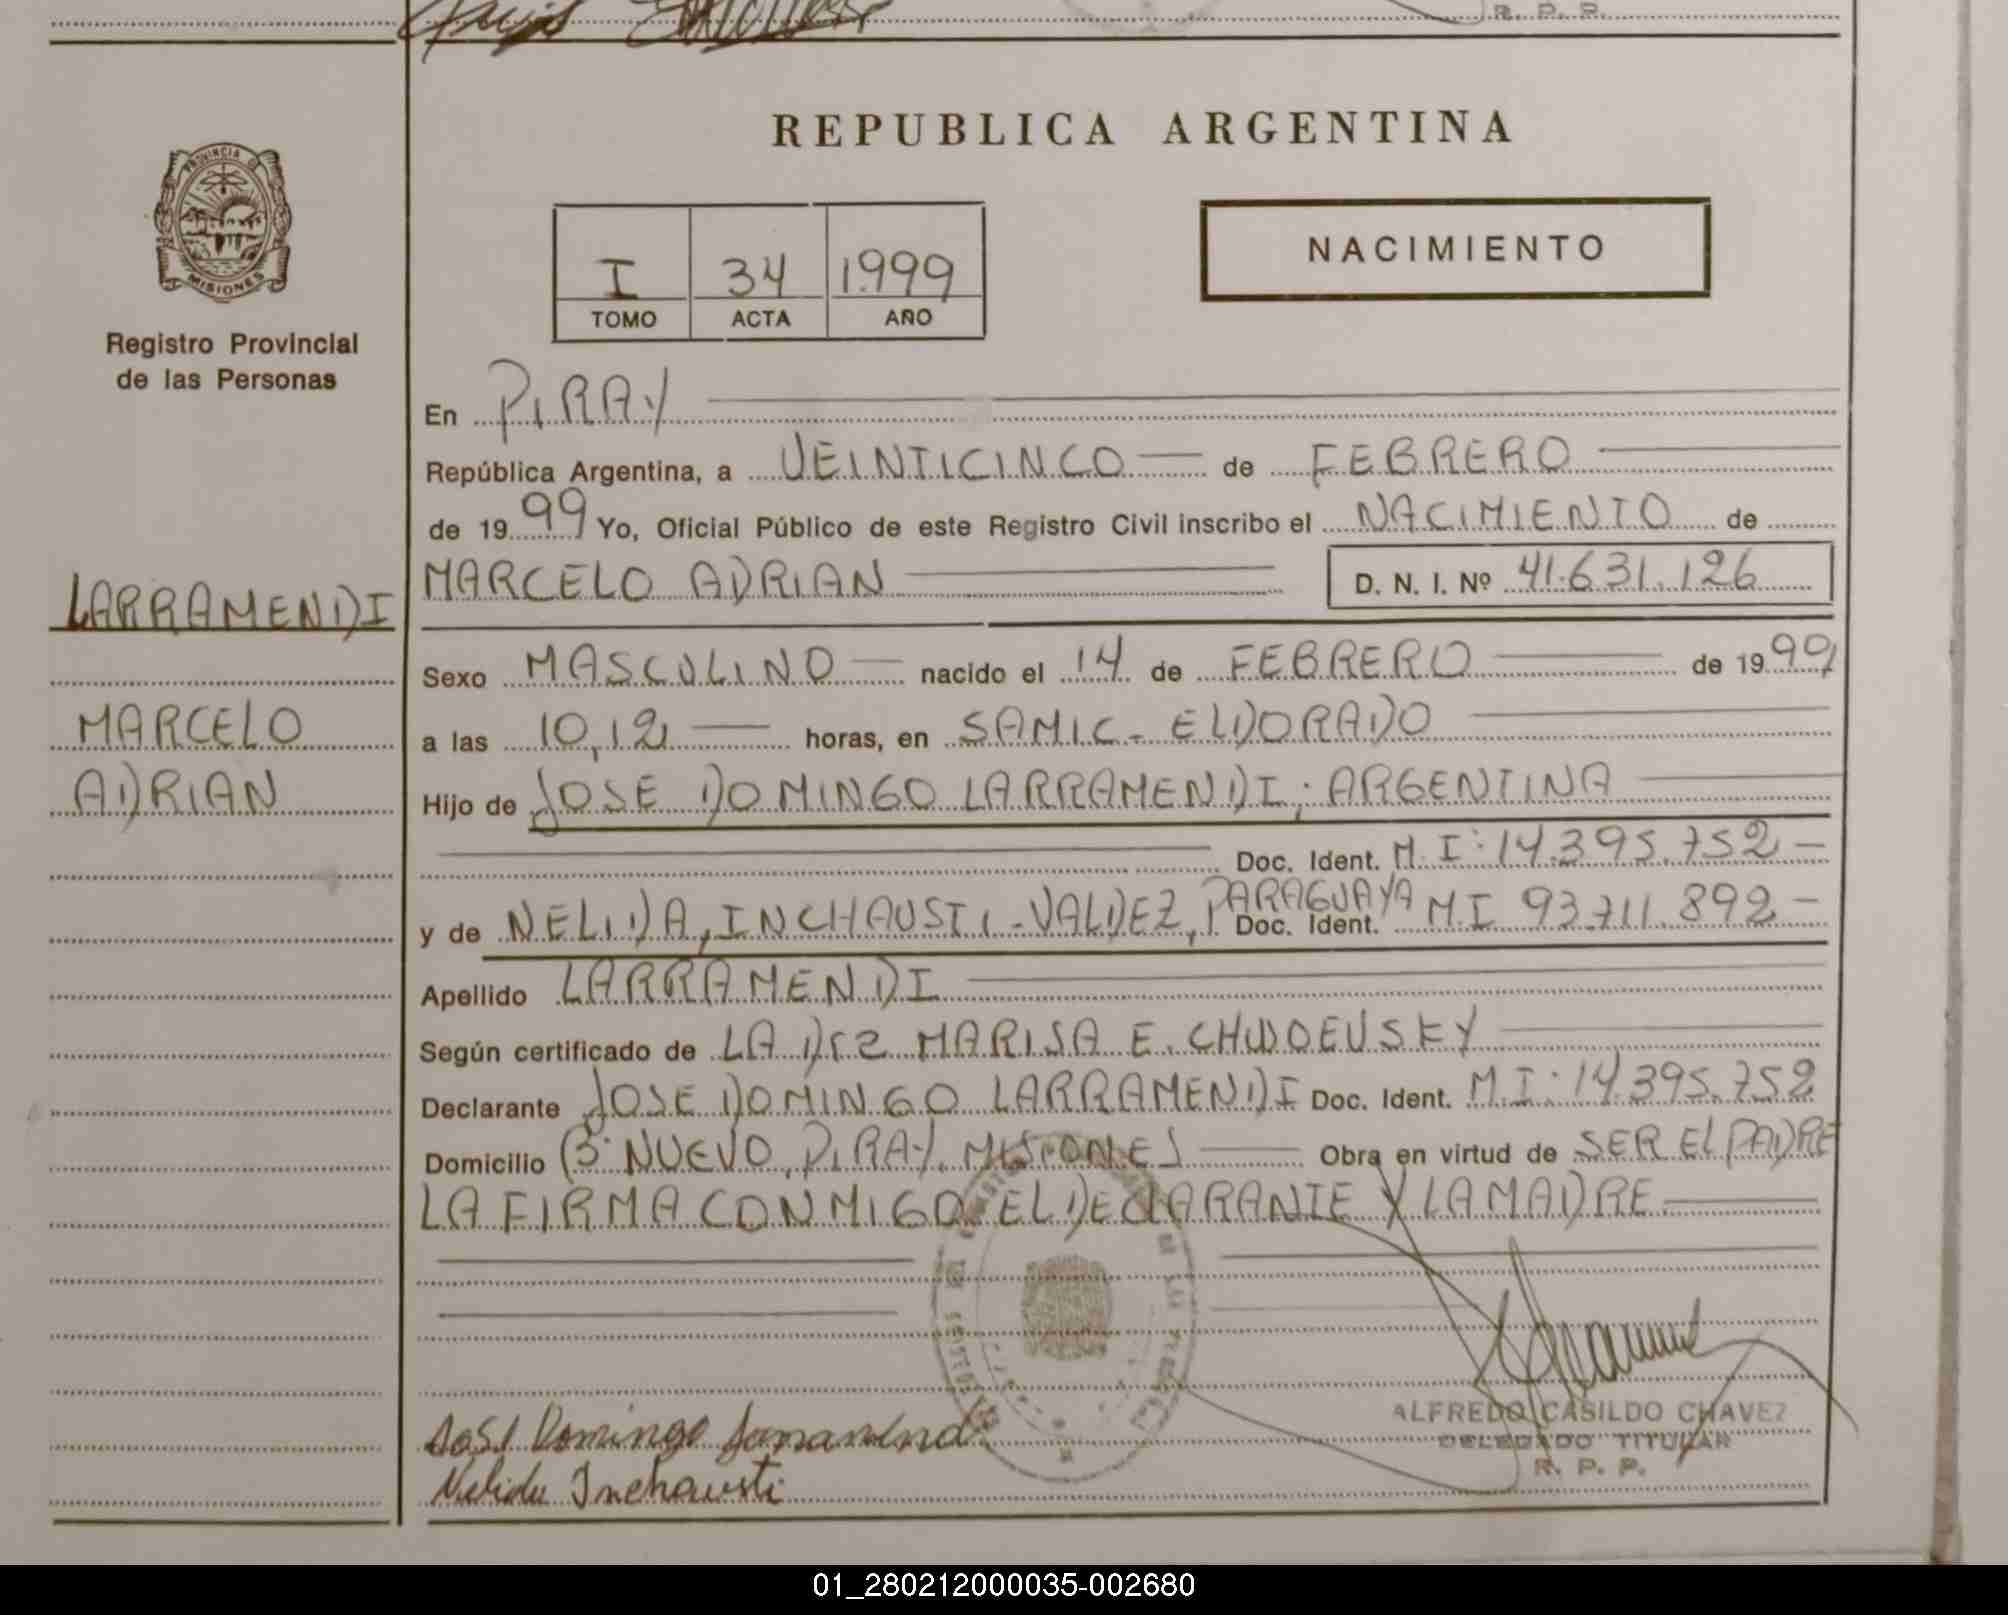 R. P. P.
PROVINCIA DE
MISIONES
Registro Provincial
de las Personas
LARRAMENDI
MARCELO
ADRIAN
REPUBLICA ARGENTINA
I 34 1.999
TOMO ACTA AÑO
NACIMIENTO
En PIRAY
República Argentina, a VEINTICINCO de FEBRERO
de 1999 Yo, Oficial Público de este Registro Civil inscribo el NACIMIENTO de
MARCELO ADRIAN D. N. I. Nº 41.631.126
Sexo MASCULINO nacido el 14 de FEBRERO de 1999
a las 10,12 horas, en SAMIC - ELDORADO
Hijo de JOSE DOMINGO LARRAMENDI; ARGENTINA
Doc. Ident. M.I: 14.395.752 -
y de NELIDA, INCHAUSTI - VALDEZ, PARAGUAYA Doc. Ident. M.I 93.711.892 -
Apellido LARRAMENDI
Según certificado de LA MARISA E.
Declarante JOSE DOMINGO LARRAMENDI Doc. Ident. M.I: 14.395.752
Domicilio Bº NUEVO, PIRAY, MISIONES Obra en virtud de SER EL PADRE
LA FIRMA CONMIGO EL DECLARANTE Y LA MADRE
José Domingo Larramendi
ALFREDO CASILDO CHAVEZ
DELEGADO TITULAR
R. P. P.
Nelida Inchausti
01_280212000035-002680